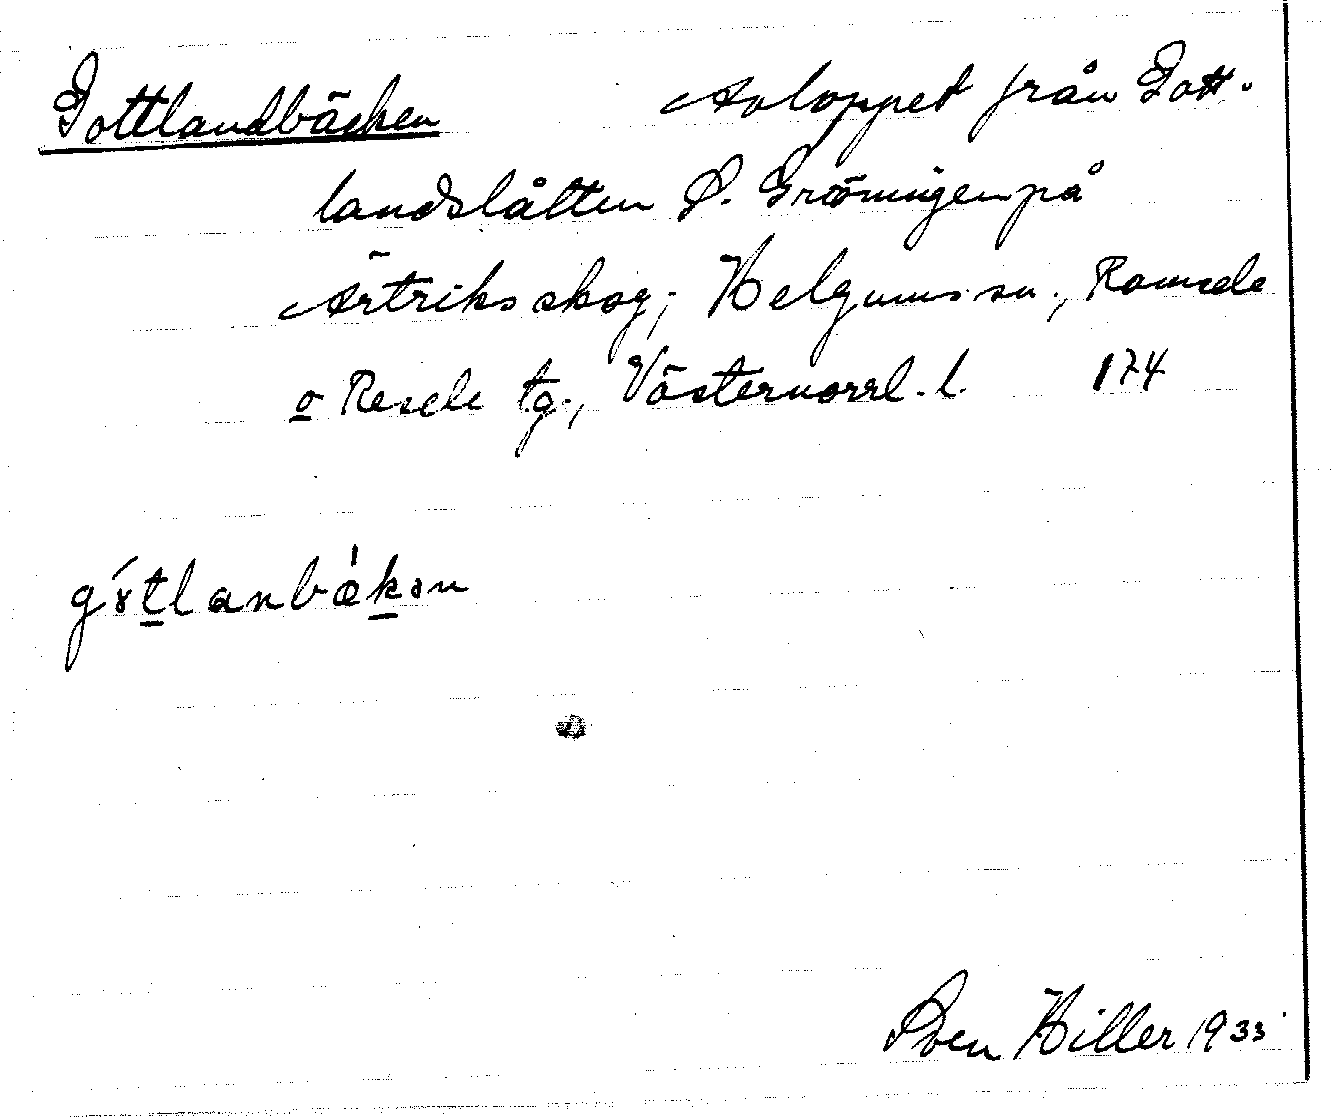 Gottlandbäcken Avloppet från Gott-
landslåtten S. Gröningen på
Ärtriks skog, Helgums sn., Ramsele
o Resele tg., Västernorrl. l. 174
gótlanbækən
Sven Hiller 1933